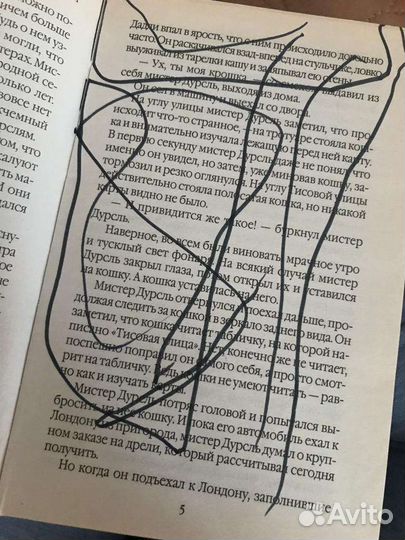 ожно по-
ичем больше
удь о нем уз-
могли, что
терах. Мис-
родной се-
олько лет.
вовсе нет
чемный
рслям.
ом, что
салуют
ть ма-
И они
дался
сну-
и
тра
Дадли впал в ярость, что с ним происходило довольно
часто. Он раскачивался взад-вперед на стульчике, ловко
выуживал из тарелки кашу и заляпывал ею стены.
— Ух, ты моя крошка, — выдавил из
себя мистер Дурсль, выходя из дома.
Он сел в машину и выехал со двора.
На углу улицы мистер Дурсль заметил, что про-
исходит что-то странное, — на тротуаре стояла кош-
ка и внимательно изучала лежащую перед ней карту.
В первую секунду мистер Дурсль даже не понял, что
именно он увидел, но затем, уже миновав кошку, за-
тормозил и резко оглянулся. На углу Тисовой улицы
действительно стояла полосатая кошка, но никакой
карты видно не было.
— И привидится же такое! — буркнул мистер
Дурсль.
Наверное, во всем были виноваты мрачное утро
и тусклый свет фонаря. На всякий случай мистер
Дурсль закрыл глаза, потом открыл их и уставился
на кошку. А кошка уставилась на него.
Мистер Дурсль отвернулся и поехал дальше, про-
должая следить за кошкой в зеркало заднего вида. Он
заметил, что кошка читает табличку, на которой на-
писано «Тисовая улица». Нет, конечно же, не читает,
поспешно поправил он самого себя, а просто смот-
рит на табличку. Ведь кошки не умеют читать — рав-
но как и изучать карты.
Мистер Дурсль потряс головой и попытался вы-
бросить из нее кошку. И пока его автомобиль ехал к
Лондону из пригорода, мистер Дурсль думал о круп-
ном заказе на дрели, который рассчитывал сегодня
получить.
Но когда он подъехал к Лондону, заполнившие
5
Avito